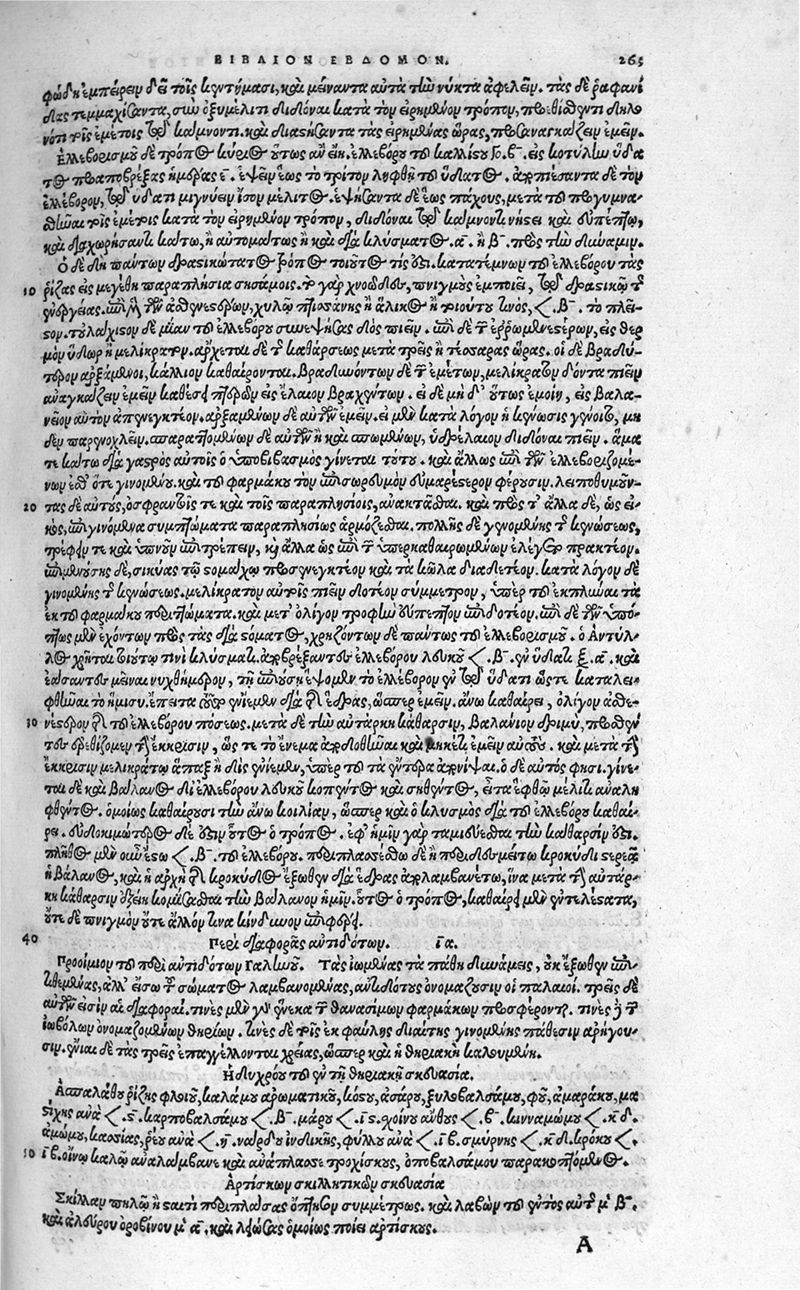 ΒΙΒΛΙΟΝ ΕΒΔΟΜΟΝ. 265
τοῖς κεντήμασι, καὶ μείναντα αὐτὰ τὴν νύκτα ἀφελεῖν. τὰς δὲ ῥαφανί
δας τεμμαχίζοντα, σὺν ὀξυμέλιτι διδόναι κατὰ τὸν εἰρημένον τρόπον, δηλο
νότι τοῖς ἐμέτοις τῷ κάμνοντι. καὶ τὰς εἰρημένας ὥρας, προσαναγκάζειν ἐμεῖν.
Ἑλλεβορισμοῦ δὲ τρόπος κύριος οὗτος ἂν εἴη. ἑλλεβόρου τοῦ καλλίστου εἰς κοτύλην ὕδα
τος προαποβρέξας ἡμέρας ε. ἕψει ἕως τὸ τρίτον λειφθῇ τοῦ ὕδατος. δὲ τὸν
ἑλλέβορον, τῷ ὕδατι μιγνύειν ἴσον μέλιτος. ἑψήσαντα δὲ ἕως πάχους, μετὰ τὸ προγυμνα
σθῆναι τοῖς ἐμέτοις κατὰ τὸν εἰρημένον τρόπον, διδόναι τῷ κάμνοντι νήστει καὶ εὐπέπτῳ,
καὶ διαχωρήσαντι κάτω, ἢ αὐτομάτως ἢ καὶ διὰ κλύσματος. α. ἢ β. πρὸς τὴν δύναμιν.
Ὁ δὲ δὴ πάντων δραστικώτατος τρόπος τοιοῦτός τίς ἐστι. κατατέμνων τοῦ ἑλλεβόρου τὰς
10 ῥίζας εἰς μεγέθη παραπλήσια σησάμοις. τὸ γὰρ χνοῶδες, πνιγμοὺς ἐμποιεῖ, τῷ δραστικῷ τῆς
ἐνεργείας. ἐπὶ μὲν τῶν ἀσθενεστέρων, χυλῷ πτισάνης ἢ ἄλικος ἢ τοιούτου τινὸς, <. β. τὸ πλεῖ-
στον. τοὐλάχιστον δὲ μίαν τοῦ ἑλλεβόρου συνεψήσας δὸς πιεῖν. ἐπὶ δὲ τῶν ἐῤῥωμενεστέρων, εἰς θερ
μὸν ὕδωρ ἢ μελίκρατον. ἄρχεται δὲ τῆς καθάρσεως μετὰ τρεῖς ἢ τέσσαρας ὥρας. οἱ δὲ βραδύ-
τερον ἀρξάμενοι, κάλλιον καθαίρονται. βραδυνόντων δὲ τῶν ἐμέτων, μελίκρατον δόντα πιεῖν
ἀναγκάζειν ἐμεῖν καθέσει πτερῶν εἰς ἔλαιον βραχέντων. εἰ δὲ μηδ᾽ οὕτως ἐμοῖεν, εἰς βαλα-
νεῖον αὐτὸν ἀπενεγκτέον. ἀρξαμένων δὲ αὐτῶν ἐμεῖν. εἰ μὲν κατὰ λόγον ἡ κένωσις γένοιτο, μη
δὲν παρενοχλεῖν. σπαραττομένων δὲ αὐτῶν ἢ καὶ σπωμένων, ὑδρέλαιον διδόναι πιεῖν. ἅμα
τε κάτω διὰ γαστρὸς αὐτοῖς ὁ ὑποβιβασμὸς γίνεται τούτου. καὶ ἄλλως ἐπὶ τῶν ἑλλεβοριζομέ-
νων ἐσθ᾽ ὅτε γινομένου. καὶ τοῦ φαρμάκου τὸν ἐπὶ σωρευμὸν εὐμαρέστερον φέρουσιν. λειποθυμοῦν-
20 τας δὲ αὐτοὺς, ὀσφραντοῖς τε καὶ τοῖς παραπλησίοις, ἀνακτᾶσθαι. καὶ πρὸς τ᾽ ἄλλα δὲ, ὡς εἰ-
κὸς, ἐπιγινόμενα συμπτώματα παραπλησίως ἁρμόζεσθαι. πολλῆς δὲ γενομένης τῆς κενώσεως,
τρέφειν τε καὶ ὕπνον ἐπιτρέπειν, καὶ ἄλλα ὡς ἐπὶ τῶν ὑπερκαθαιρομένων ἐλέγετο πρακτέον.
ἐπιμενούσης δὲ, σικύας τῷ στομάχῳ προσενεγκτέον καὶ τὰ κῶλα διαδετέον. κατὰ λόγον δὲ
γινομένης τῆς κενώσεως. μελίκρατον αὖτις πιεῖν δοτέον σύμμετρον, ὑπὲρ τοῦ ἐκπλῦναι τὰ
ἐκ τοῦ φαρμάκου περιττώματα. καὶ μετ᾽ ὀλίγον τροφὴν εὔπεπτον ἐπιδοτέον. ἐπὶ δὲ τῶν ὑπό-
πτως μὲν ἐχόντων πρὸς τὰς διὰ στόματος, χρῃζόντων δὲ πάντως τοῦ ἑλλεβορισμοῦ. ὁ Ἀντύλ-
λος χρῆται τοιούτῳ τινὶ κλύσματι. ἀποβρέξαντες ἑλλεβόρου λευκοῦ <. β. ἐν ὕδατι ξ. α. καὶ
ἐάσαντες μεῖναι νυχθήμερον, τῇ ἐπιούσῃ ἕψομεν τὸ ἑλλέβορον ἐν τῷ ὕδατι ὥστε καταλει-
φθῆναι τὸ ἥμισυ. ἔπειτα ἐνίεμεν διὰ τῆς ἕδρας, ὥσπερ ἐμεῖν. ἄνω καθαίρει, ὀλίγον ἀσθε-
30 νέστερον τῆς τοῦ ἑλλεβόρου πόσεως. μετὰ δὲ τὴν αὐτάρκη κάθαρσιν, βαλάνιον δριμὺ, προσθέν
τες ἐρεθίζομεν τὴν ἔκκρισιν, ὥς τε τὸ ἔνεμα ἀποδοθῆναι καὶ μηκέτι ἐμεῖν αὐτούς. καὶ μετὰ τὴν
ἔκκρισιν μελικράτῳ ἅπαξ ἢ δὶς ἐνίεμεν, ὑπὲρ τοῦ τὰ ἔντερα ἀπονίψαι. ὁ δὲ αὐτός φησι. γίνε-
ται δὲ καὶ βάλανος δι᾽ ἑλλεβόρου λευκοῦ κοπέντος καὶ σηθέντος, εἶτα ἑφθῷ μέλιτι ἀναλη
φθέντος. ὁμοίως καθαίρουσι τὴν ἄνω κοιλίαν, ὥσπερ καὶ ὁ κλυσμὸς διὰ τοῦ ἑλλεβόρου καθαί-
ρει. εὐδοκιμώτερος δέ ἐστιν οὗτος ὁ τρόπος. ἐφ᾽ ἡμῖν γὰρ ταμιεύεσθαι τὴν κάθαρσίν ἐστι.
πλῆθος μὲν οὖν ἔστω <. β. τοῦ ἑλλεβόρου. περιπλασσέσθω δὲ ἢ περιδεσμείτω κροκύδι στερεᾷ
ἡ βάλανος, καὶ ἡ ἀρχὴ τῆς κροκύδος ἔξωθεν διὰ ἕδρας ἀπολαμβανέτω, ἵνα μετὰ τὴν αὐτάρ-
κη κάθαρσιν ἐξείη κομίζεσθαι τὴν βάλανον ἡμῖν. οὗτος ὁ τρόπος, καθαίρει μὲν ἐντελέστατα,
οὔτε δὲ πνιγμὸν οὔτε ἄλλον τινὰ κίνδυνον ἐπιφέρει.
40 Περὶ διαφορᾶς ἀντιδότων. ια.
Προοίμιον τοῦ περὶ ἀντιδότων Γαληνοῦ. Τὰς ἰωμένας τὰ πάθη δυνάμεις, οὐκ ἔξωθεν ἐπι-
τιθεμένας, ἀλλ᾽ εἴσω τοῦ σώματος λαμβανομένας, ἀντιδότους ὀνομάζουσιν οἱ παλαιοί. τρεῖς δὲ
αὐτῶν εἰσιν αἱ διαφοραί. τινὲς μὲν γὰρ ἕνεκα τῶν θανασίμων φαρμάκων προσφέρονται. τινὲς δὲ τῶν
ἰοβόλων ὀνομαζομένων θηρίων. τινὲς δὲ τοῖς ἐκ φαύλης διαίτης γινομένοις πάθεσιν ἀρήγου-
σιν. ἔνιαι δὲ τὰς τρεῖς ἐπαγγέλλονται χρείας, ὥσπερ καὶ ἡ θηριακὴ καλουμένη.
Ἡδυχρόου τοῦ ἐν τῇ θηριακῇ σκευασία.
Ἀσπαλάθου ῥίζης φλοιοῦ, καλάμου ἀρωματικοῦ, κόστου, ἀσάρου, ξυλοβαλσάμου, φοῦ, ἀμαράκου, μα
στίχης ἀνὰ <. ς. καρποβαλσάμου <. β. μάρου <. ις. σχοίνου ἄνθους <. β. κινναμώμου <. κδ.
ἀμώμου, κασίας, ῥέου ἀνὰ <. η. νάρδου ἰνδικῆς, φύλλου ἀνὰ <. ιβ. σμύρνης <. κδ. κρόκου <.
50 ιβ. οἴνῳ καλῷ ἀναλάμβανε καὶ ἀνάπλασσε τροχίσκους, ὀποβαλσάμου παραπτόμενος.
Ἀρτίσκων σκιλλητικῶν σκευασία
Σκίλλαν πηλῷ ἢ σταιτὶ περιπλάσας ὄπτησον συμμέτρως. καὶ λαβὼν τοῦ ἐντὸς αὐτῆς μ β.
καὶ ἀλεύρου ὀροβίνου μ α. καὶ λειώσας ὁμοίως ποίει ἀρτίσκους.
A